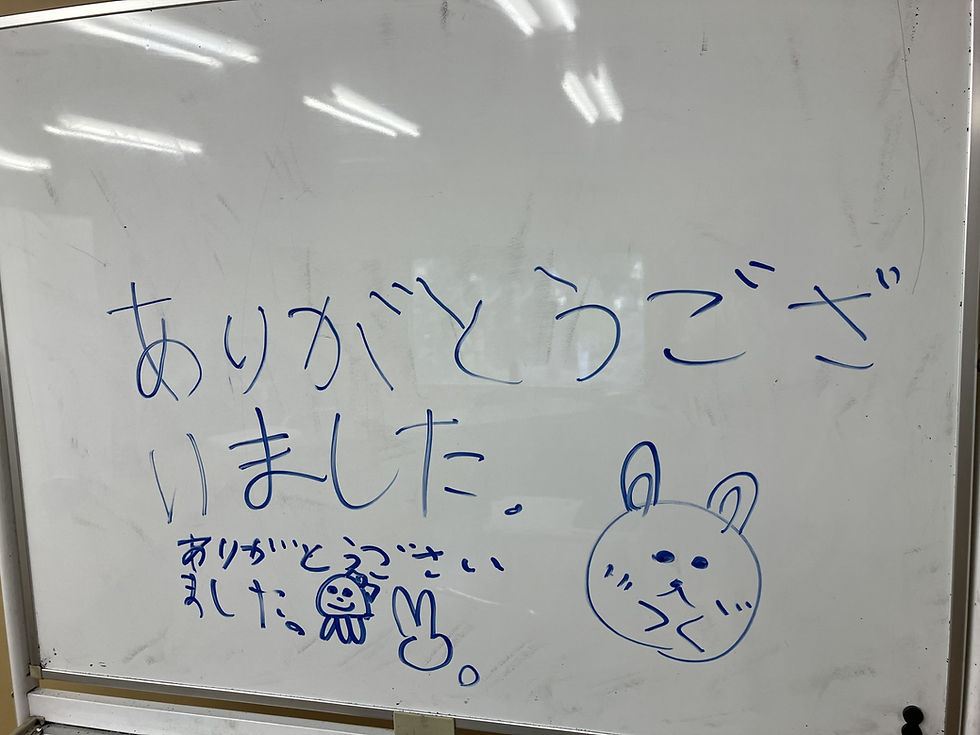 ありがとうござ
いました。
ありがとうごさい
ました。
つぐ